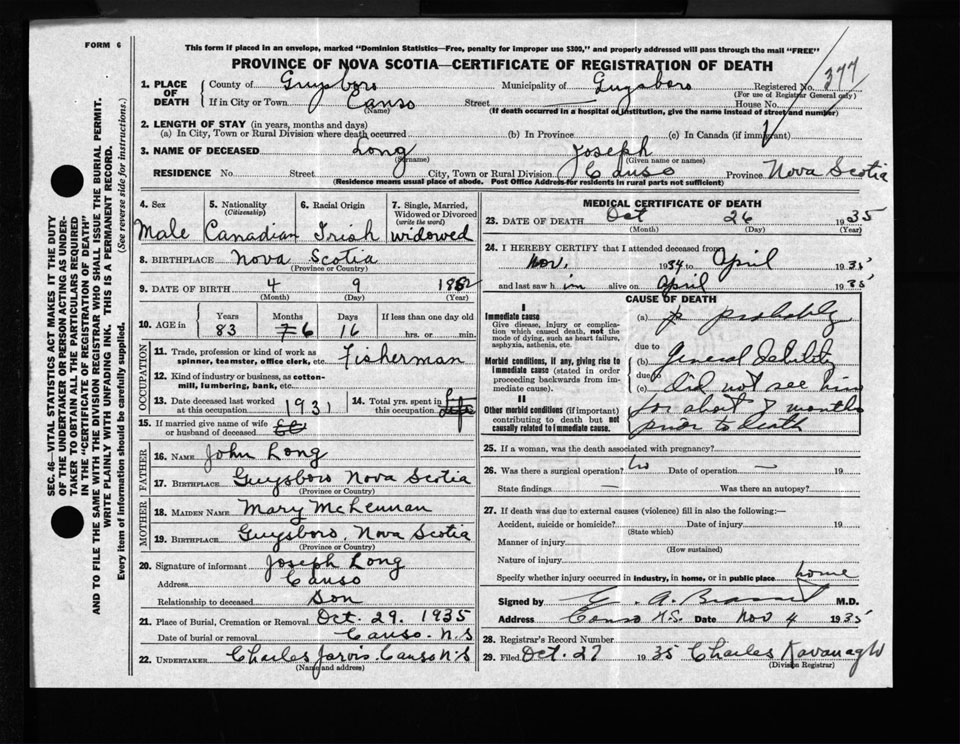 FORM 6
This form if placed in an envelope, marked "Dominion Statistics—Free, penalty for improper use $300," and properly addressed will pass through the mail "FREE"
PROVINCE OF NOVA SCOTIA—CERTIFICATE OF REGISTRATION OF DEATH
377
1. PLACE OF DEATH County of Guysboro Municipality of Guysboro Registered No.
(For use of Registrar General only)
If in City or Town Canso Street — House No.
(Name) (If death occurred in a hospital or institution, give the name instead of street and number)
2. LENGTH OF STAY (in years, months and days)
(a) In City, Town or Rural Division where death occurred (b) In Province (c) In Canada (if immigrant)
3. NAME OF DECEASED Long Joseph
(Surname) (Given name or names)
RESIDENCE No. Street City, Town or Rural Division Canso Province Nova Scotia
(Residence means usual place of abode. Post Office Address for residents in rural parts not sufficient)
4. Sex 5. Nationality (Citizenship) 6. Racial Origin 7. Single, Married, Widowed or Divorced (write the word)
Male Canadian Irish widowed
8. BIRTHPLACE Nova Scotia
(Province or Country)
9. DATE OF BIRTH 4 9 1852
(Month) (Day) (Year)
10. AGE in Years Months Days If less than one day old
83 6 16 hrs. or min.
OCCUPATION
11. Trade, profession or kind of work as spinner, teamster, office clerk, etc. Fisherman
12. Kind of industry or business, as cotton-mill, lumbering, bank, etc.
13. Date deceased last worked at this occupation 1931 14. Total yrs. spent in this occupation Life
15. If married give name of wife or husband of deceased
FATHER
16. NAME John Long
17. BIRTHPLACE Guysboro Nova Scotia
(Province or Country)
MOTHER
18. MAIDEN NAME Mary McLennan
19. BIRTHPLACE Guysboro, Nova Scotia
(Province or Country)
20. Signature of informant Joseph Long
Address Canso
Relationship to deceased Son
21. Place of Burial, Cremation or Removal Oct. 29. 1935
Date of burial or removal Canso. N.S
22. UNDERTAKER Charles Jarvis Canso N.S
(Name and address)
MEDICAL CERTIFICATE OF DEATH
23. DATE OF DEATH Oct 26 1935
(Month) (Day) (Year)
24. I HEREBY CERTIFY that I attended deceased from
Nov. 1934 to April 1935
and last saw him alive on April 1935
CAUSE OF DEATH
I
Immediate cause
Give disease, injury or complication which caused death, not the mode of dying, such as heart failure, asphyxia, asthenia, etc.
(a) probably
due to
Morbid conditions, if any, giving rise to immediate cause (stated in order proceeding backwards from immediate cause).
(b) General debility
due to
(c) did not see him
II
Other morbid conditions (if important) contributing to death but not causally related to immediate cause.
for about 7 months
prior to death
25. If a woman, was the death associated with pregnancy?
26. Was there a surgical operation? no Date of operation — 19
State findings — Was there an autopsy?
27. If death was due to external causes (violence) fill in also the following:—
Accident, suicide or homicide? Date of injury 19
(State which)
Manner of injury
(How sustained)
Nature of injury
Specify whether injury occurred in industry, in home, or in public place home
Signed by M.D.
Address Canso N.S. Date Nov 4 1935
28. Registrar's Record Number
29. Filed Oct. 27 1935 Charles Kavanagh
(Division Registrar)
SEC. 46—VITAL STATISTICS ACT MAKES IT THE DUTY
OF THE UNDERTAKER OR PERSON ACTING AS UNDER-
TAKER TO OBTAIN ALL THE PARTICULARS REQUIRED
IN THE "CERTIFICATE OF REGISTRATION OF DEATH"
AND TO FILE THE SAME WITH THE DIVISION REGISTRAR WHO SHALL ISSUE THE BURIAL PERMIT.
WRITE PLAINLY WITH UNFADING INK. THIS IS A PERMANENT RECORD.
Every item of information should be carefully supplied. (See reverse side for instructions.)